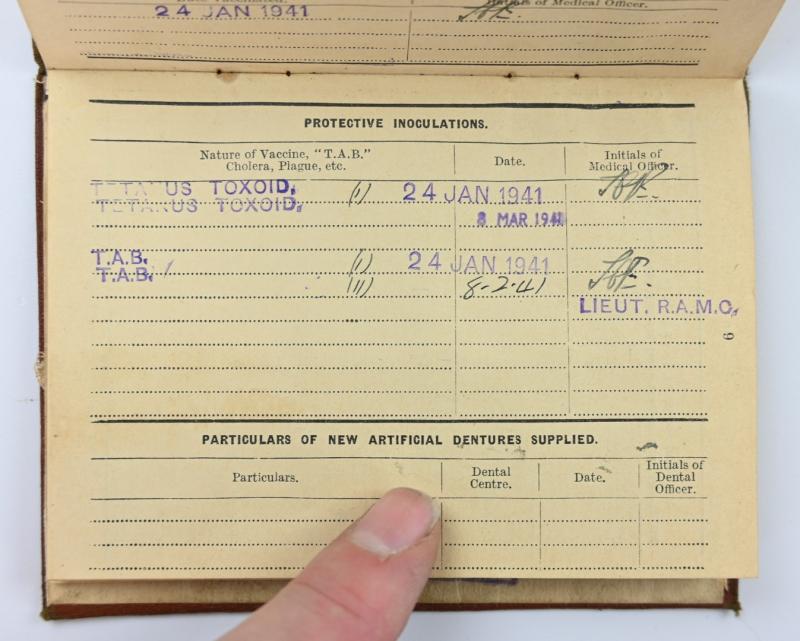 24 JAN 1941
Initials of Medical Officer.
PROTECTIVE INOCULATIONS.
Nature of Vaccine, "T.A.B."
Cholera, Plague, etc.
Date.
Initials of
Medical Officer.
TETANUS TOXOID. (i) 24 JAN 1941
TETANUS TOXOID. 8 MAR 1941
T.A.B. (i) 24 JAN 1941
T.A.B. (ii) 8-2-41
LIEUT. R.A.M.C.
9
PARTICULARS OF NEW ARTIFICIAL DENTURES SUPPLIED.
Particulars.
Dental
Centre.
Date.
Initials of
Dental
Officer.